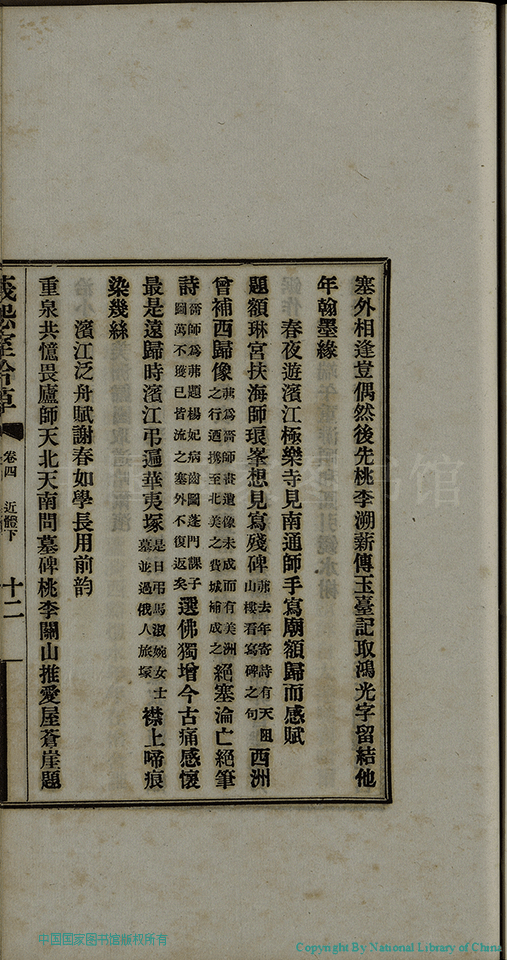 塞外相逢豈偶然後先桃李溯薪傳玉臺記取鴻光字留結他
年翰墨緣
春夜遊濱江極樂寺見南通師手寫廟額歸而感賦
題額琳宮扶海師環峯想見寫殘碑 去年寄詩有天阻山樓看寫碑之句 西洲
曾補西歸像 為嗇師畫遺像未成而有美洲之行迺携至北美之費城補成之 絕塞淪亡絕筆
詩 嗇師為 題楊妃病齒圖蓬門課子圖萬不 已皆流之塞外不復返矣 選佛獨增今古痛感懷
最是遠歸時濱江弔遍華夷塚 是日弔馬淑婉女士墓並過俄人旅塚 襟上啼痕
染幾絲
濱江泛舟賦謝春如學長用前韵
重泉共憶畏廬師天北天南問墓碑桃李關山推愛屋蒼崖題
室 草 卷四 近體下 十二
中国国家图书馆版权所有
Copyright By National Library of China